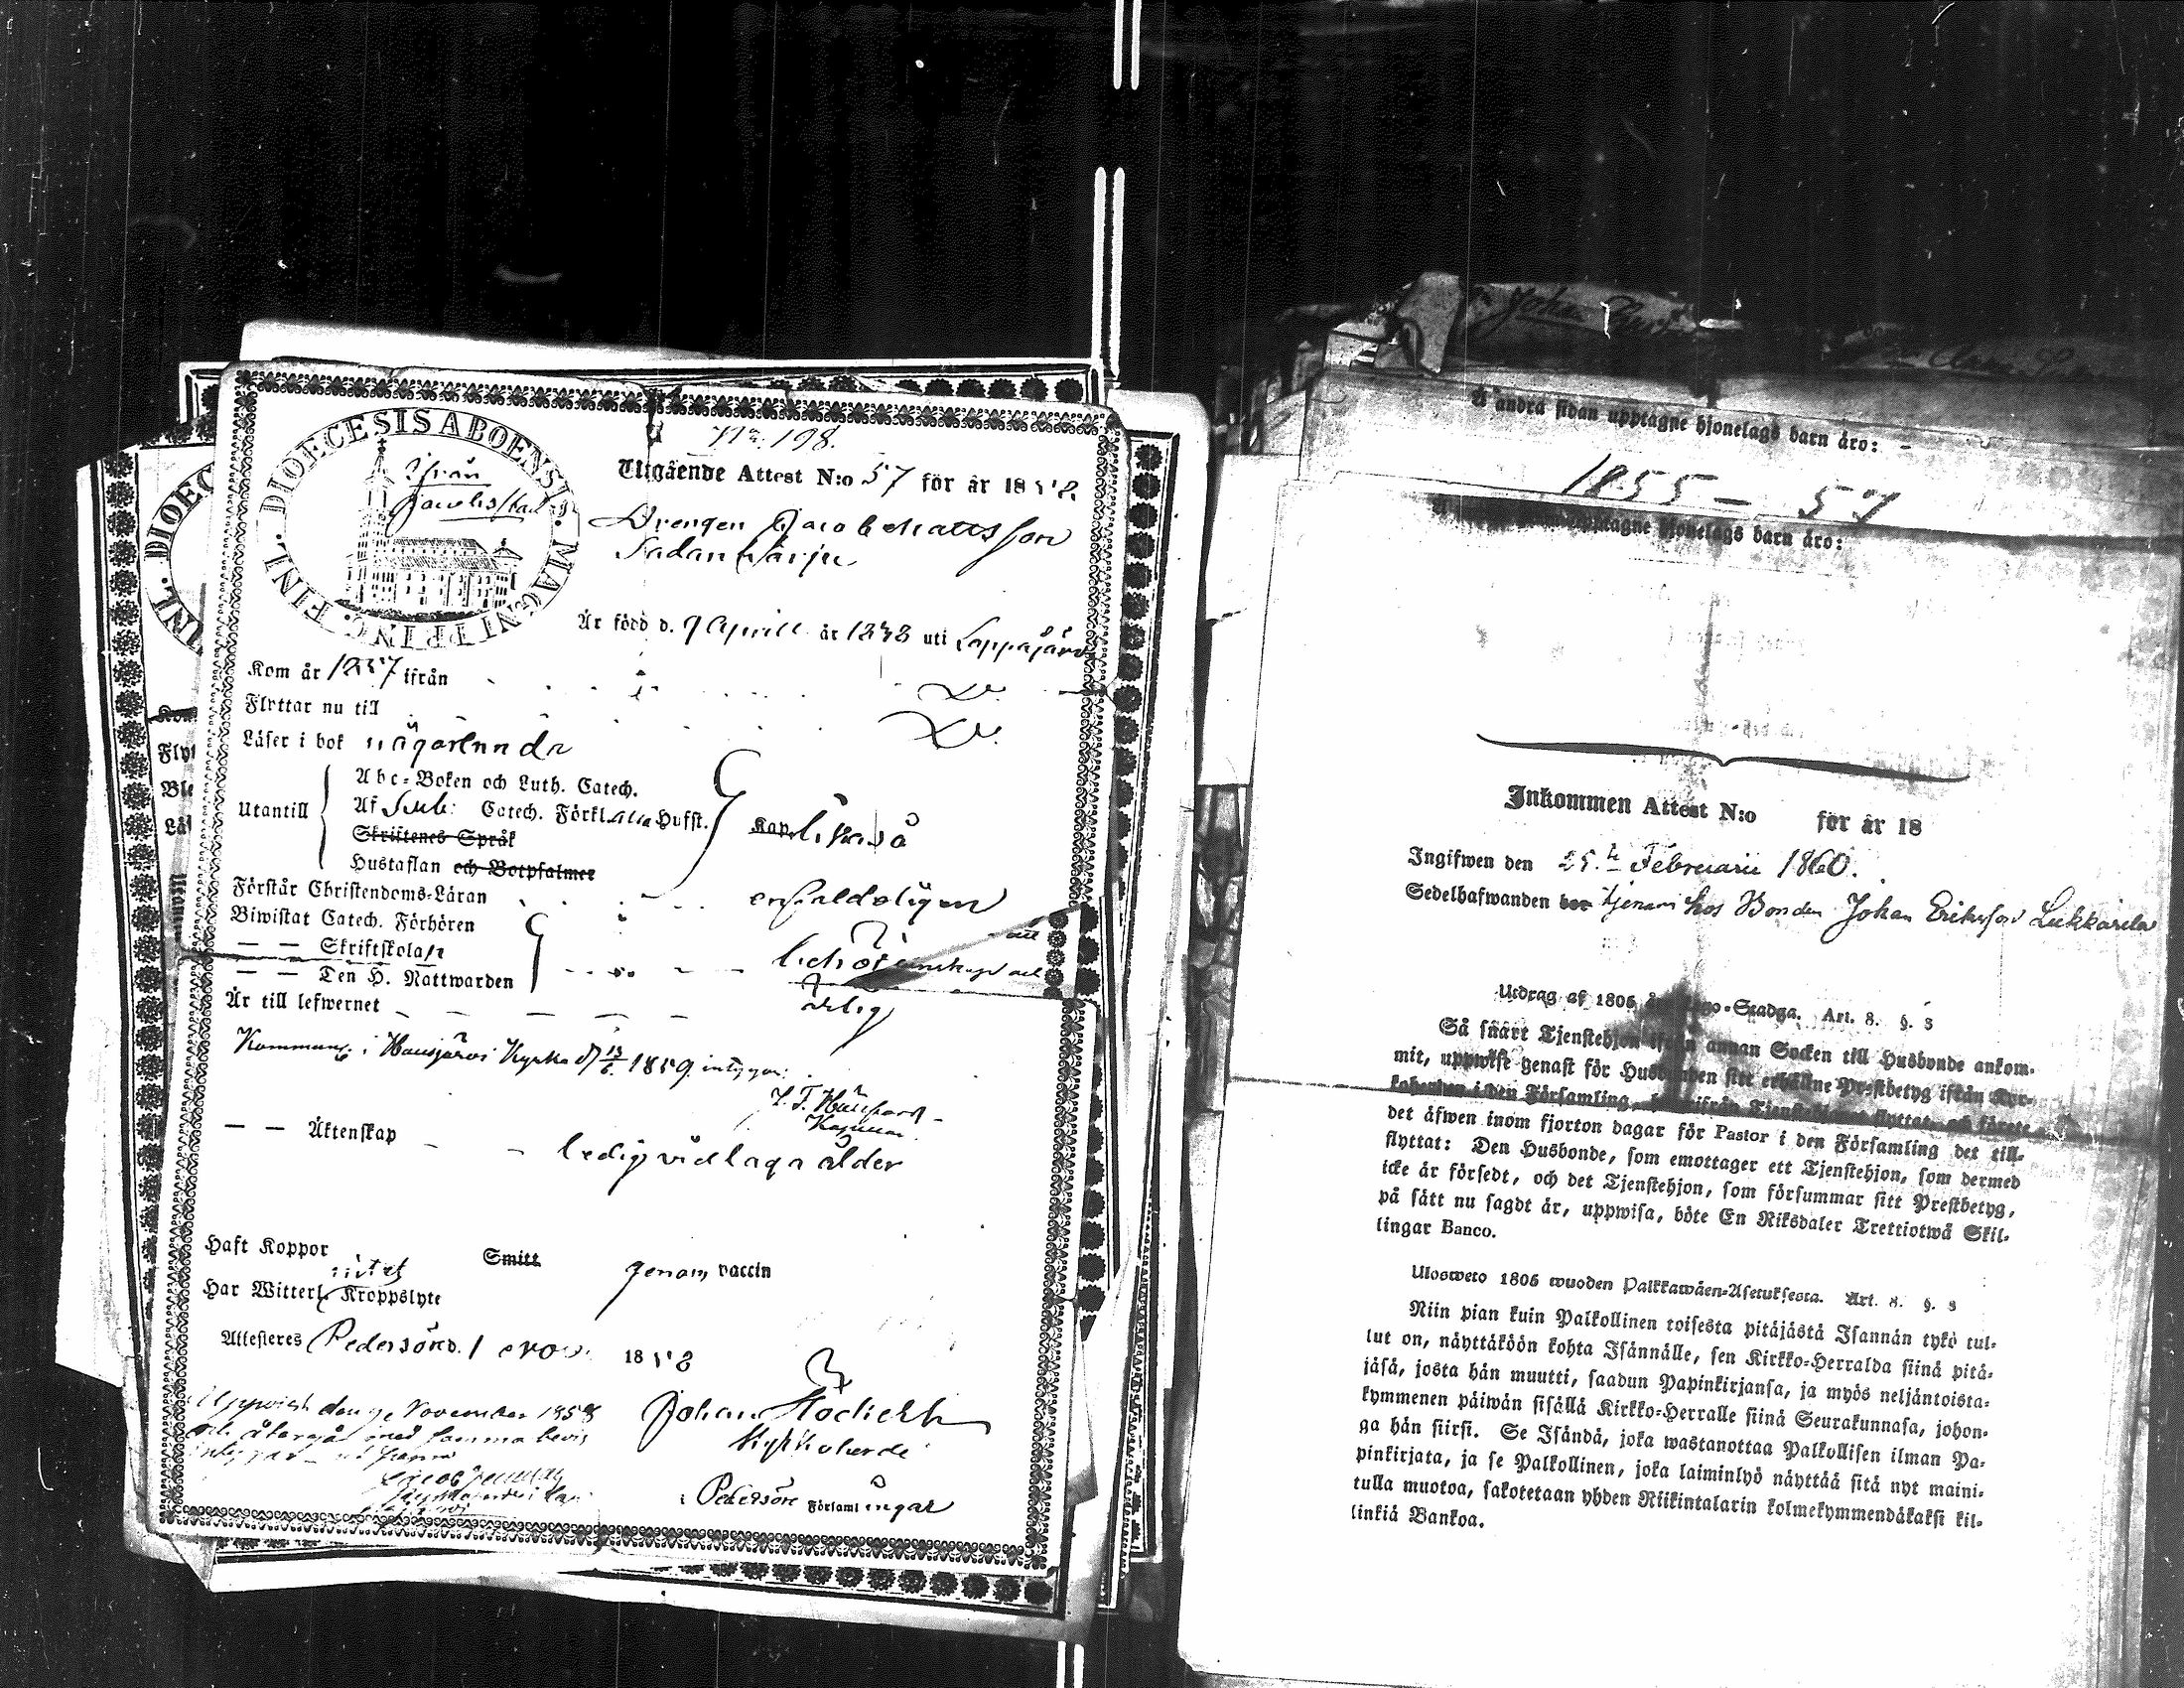 DIOECESIS ABOENSIS. MAGNI PRINC. FINL.
Ifrån
Jacobsstad
No. 198.
Utgående Attest N:o 57 för år 1858
Drengen Jacob Mattsson
Sadanharju
Är född d. 9 Aprill år 1838 uti Lappajärvi
Kom år 1857 ifrån
Flyttar nu till
Läser i bok någorlunda
Utantill
Abc-Boken och Luth. Catech.
Af Sveb: Catech. Förkl. alla Hufst.
Kap. likaså
Skriftenes Språk
Hustaflan och Botpsalmer
Förstår Christendoms-Läran enfaldeligen
Biwistat Catech. Förhören
— — Skriftskolan
— — Den H. Nattwarden
Är till lefwernet ärlig
Kommun. i Hausjärvi Kyrka d 13/6 1859 intygar:
— — Äktenskap ledig vid laga ålder
Haft Koppor Smitt genom vaccin
Har Witterl. Kroppslyte intet
Attesteres Pedersöre d. 1 Nov. 1858
Johan
Kyrkoherde
i Pedersöre Församlingar
Uppvist den 9 November 1858
och återgår med samma bevis
DIOEC
INL.
Kom
Flyt
Ble
Läs
Å andra sidan upptagne hjonelags barn äro:
1855 — 57
upptagne hjonelags barn äro:
Inkommen Attest N:o för år 18
Ingifwen den 25te Februarii 1860.
Sedelhafwanden bor tjenar hos Bonden Johan Eriksson Lukkarila
Utdrag af 1805 års Lego-Stadga. Art. 8. §. 3
Så snart Tjenstehjon ifrån annan Socken till Husbonde ankom-
mit, uppwise genast för Husbonden sitt erhållne Prestbetyg ifrån Kyr-
koherden i den Församling, hwarifrån Tjenstehjonet flyttat, och förete
det äfwen inom fjorton dagar för Pastor i den Församling det till-
flyttat: Den Husbonde, som emottager ett Tjenstehjon, som dermed
icke är försedt, och det Tjenstehjon, som försummar sitt Prestbetyg,
på sätt nu sagdt är, uppwisa, böte En Riksdaler Trettiotwå Skil-
lingar Banco.
Ulosweto 1805 wuoden Palkkawäen-Asetuksesta. Art. 8. §. 3
Niin pian kuin Palkollinen toisesta pitäjästä Isännän tykö tul-
lut on, näyttäköön kohta Isännälle, sen Kirkko-Herralda siinä pitä-
jäsä, josta hän muutti, saadun Papinkirjansa, ja myös neljäntoista-
kymmenen päiwän sisällä Kirkko-Herralle siinä Seurakunnasa, johon-
ga hän siirsi. Se Isändä, joka wastanottaa Palkollisen ilman Pa-
pinkirjata, ja se Palkollinen, joka laiminlyö näyttää sitä nyt maini-
tulla muotoa, sakotetaan yhden Riikintalarin kolmekymmendäkaksi kil-
linkiä Bankoa.